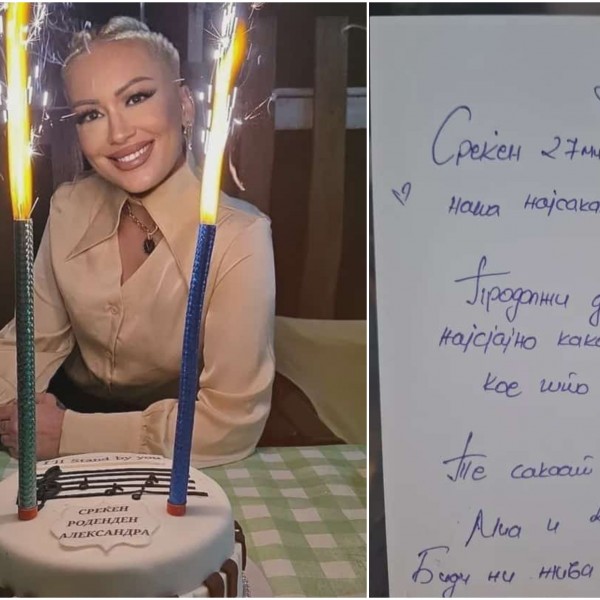 I'll Stand by you
СРЕЌЕН
РОДЕНДЕН
АЛЕКСАНДРА
Среќен 27ми
наша најсака
Продолжи д
најсјајно како
кое што
Те сакаат
Миа и
Биди ни жива